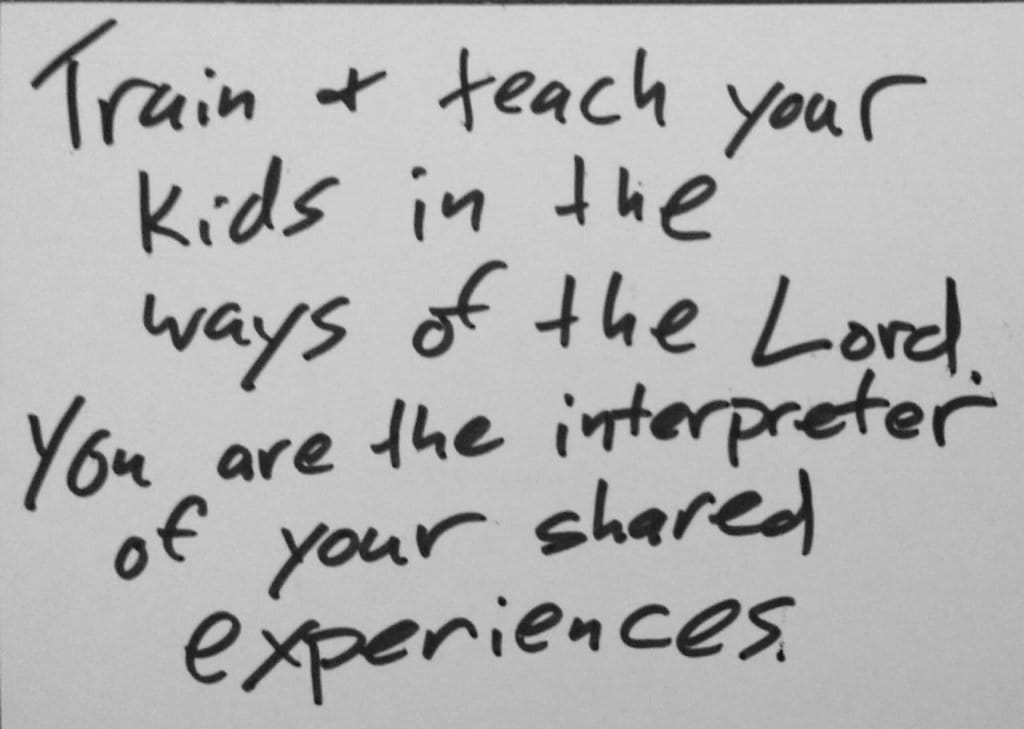 Train + teach your
kids in the
ways of the Lord.
You are the interpreter
of your shared
experiences.